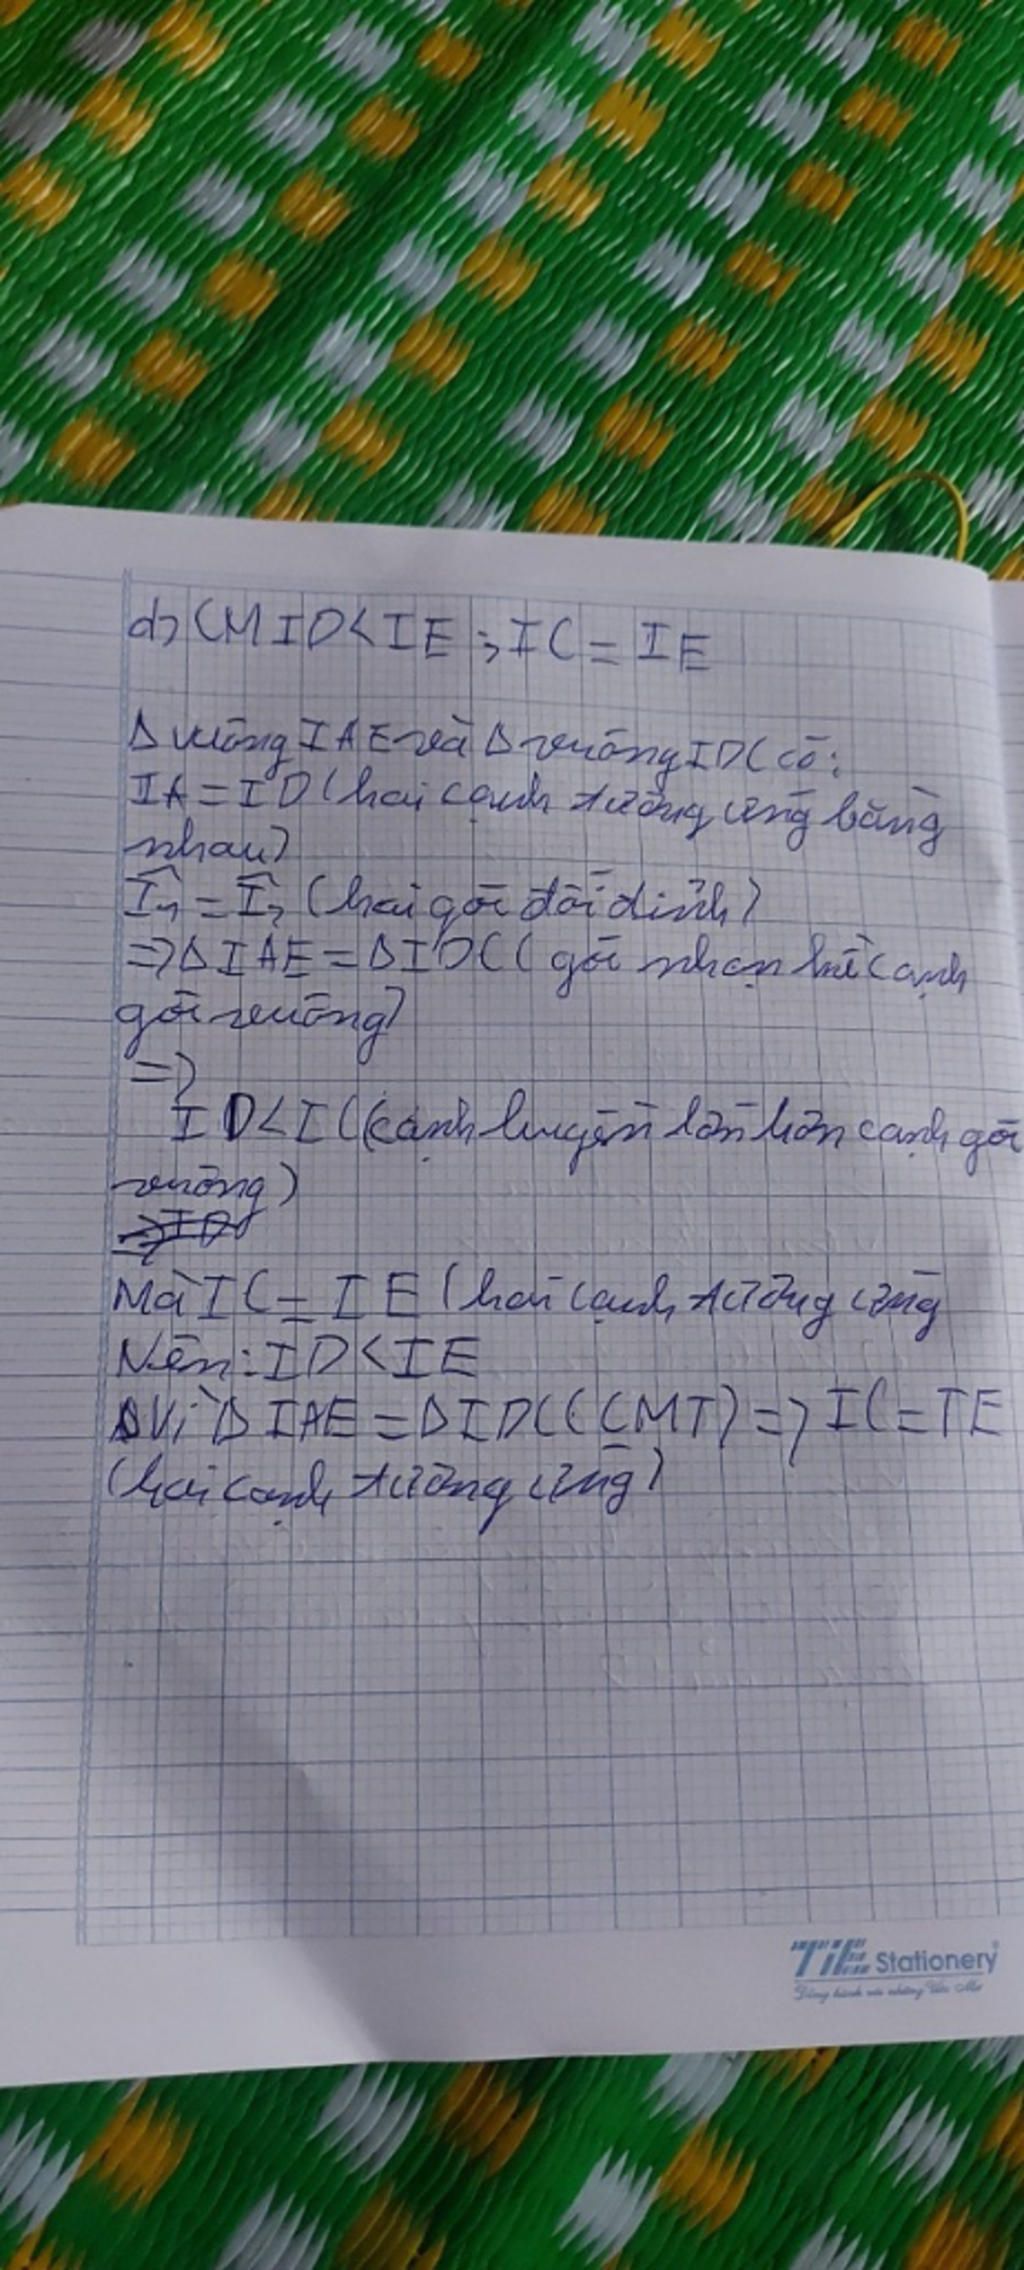 d) CM ID < IE ; IC = IE
Δ vuông IAE và Δ vuông IDC có:
IA = ID (hai cạnh tương ứng bằng
nhau)
Î₁ = Î₂ (hai góc đối đỉnh)
=> Δ IAE = Δ IDC (góc nhọn kề cạnh
góc vuông)
=>
ID < IC (cạnh huyền lớn hơn cạnh góc
vuông)
=> ID
Mà IC = IE (hai cạnh tương ứng
Nên: ID < IE
Vì Δ IAE = Δ IDC (CMT) => IC = IE
(hai cạnh tương ứng)
TiE Stationery